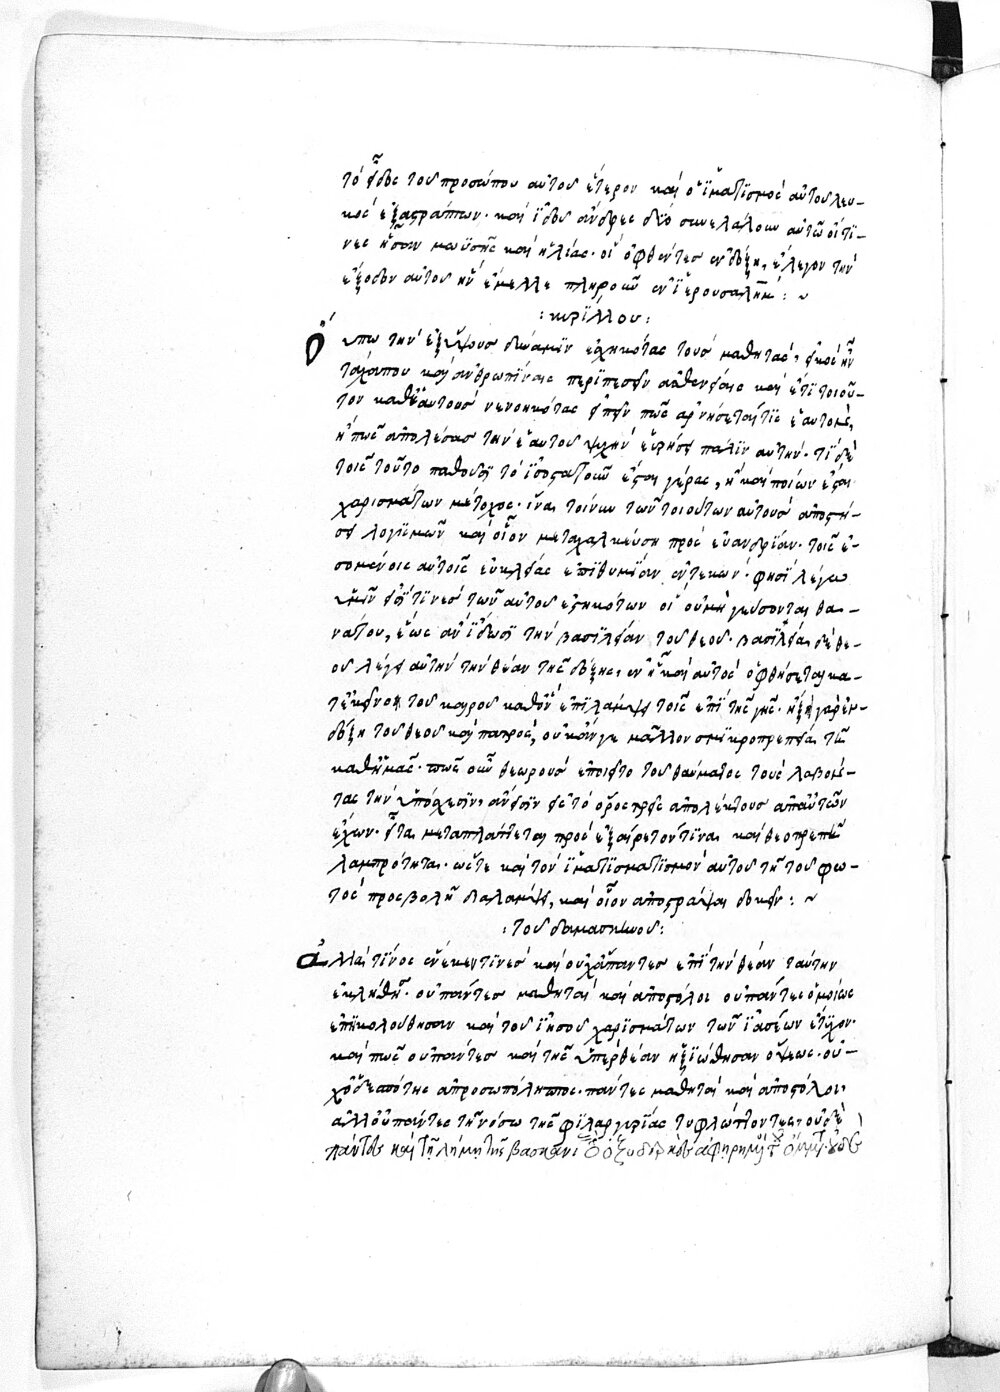 τὸ εἶδος τοῦ προσώπου αὐτοῦ ἕτερον καὶ ὁ ἱματισμὸς αὐτοῦ λευ-
κὸς ἐξαστράπτων· καὶ ἰδοὺ ἄνδρες δύο συνελάλουν αὐτῶ οἵτι-
νες ἦσαν μωϋσῆς καὶ ἠλίας· οἳ ὀφθέντες ἐν δόξη, ἔλεγον τὴν
ἔξοδον αὐτοῦ ἣν ἔμελλε πληροῦν ἐν ἱερουσαλήμ : ~
: κυρίλλου :
Οὔπω τὴν ἐξ ὕψους δύναμιν ἐσχηκότας τοὺς μαθητὰς, εἰκὸς ἦν
τάχα που καὶ ἀνθρωπίναις περιπεσεῖν ἀσθενείαις καί τι τοιοῦ-
τον καθ' ἑαυτοὺς νενοηκότας εἰπεῖν πῶς ἀρνήσεταί τις ἑαυτὸν,
ἢ πῶς ἀπολέσας τὴν ἑαυτοῦ ψυχὴν εὑρήσει πάλιν αὐτήν· τί δὲ
τοῖς τοῦτο παθοῦσι τὸ ἰσοστατοῦν ἔσται γέρας, ἢ καὶ ποίων ἔσται
χαρισμάτων μέτοχος· ἵνα τοίνυν τῶν τοιούτων αὐτοὺς ἀποστή-
σει λογισμῶν καὶ οἷον μεταχαλκεύση πρὸς εὐανδρίαν· τοῖς ἐ-
σομένοις αὐτοῖς εὐκλείας ἐπιθυμίαν ἐντεκών· φησὶ λέγω
ὑμῖν εἰσί τινες τῶν αὐτοῦ ἑστηκότων οἳ οὐ μὴ γεύσονται θα-
νάτου, ἕως ἂν ἴδωσι τὴν βασιλείαν τοῦ θεοῦ· βασιλείαν δὲ θε-
οῦ λέγει αὐτὴν τὴν θέαν τῆς δόξης, ἐν ἧ καὶ αὐτὸς ὀφθήσεται κα-
τ' ἐκεῖνο τοῦ καιροῦ καθ' ὃν ἐπιλάμψει τοῖς ἐπὶ τῆς γῆς· ἥξει γὰρ ἐν
δόξη τοῦ θεοῦ καὶ πατρὸς, οὐκ ἔν γε μᾶλλον σμικροπρεπεία τῆ
καθ' ἡμᾶς· πῶς οὖν θεωροὺς ἐποιεῖτο τοῦ θαύματος τοὺς λαβόν-
τας τὴν ὑπόσχεσιν, ἄνεισιν εἰς τὸ ὄρος τρεῖς ἀπολέκτους ἀπ' αὐτῶν
ἔχων· εἶτα μεταπλάττεται πρὸς ἐξαίρετόν τινα καὶ θεοπρεπῆ
λαμπρότητα· ὥστε καὶ τὸν ἱματισματισμὸν αὐτοῦ τῆ τοῦ φω-
τὸς προσβολῆ διαλάμψαι, καὶ οἷον ἀποστράψαι δοκεῖν : ~
: τοῦ δαμασκηνοῦ :
Ἀλλὰ τίνος ἕνεκέν τινες καὶ οὐχ ἅπαντες ἐπὶ τὴν θέαν ταύτην
ἐκλήθη· οὐ πάντες μαθηταὶ καὶ ἀπόστολοι οὐ πάντες ὁμοίως
ἐπηκολούθησαν καὶ τοῦ ἰησοῦ χαρισμάτων τῶν ἰάσεων ἔτυχον·
καὶ πῶς οὐ πάντες καὶ τῆς ὑπερθέαν ἠξιώθησαν ὄψεως· οὐ-
χ' ὁ δεσπότης ἀπροσωπόληπτος· πάντες μαθηταὶ καὶ ἀπόστολοι
ἀλλ' οὐ πάντες τῆ νόσω τῆς φιλαργυρίας τυφλώττοντες, οὐδὲ
πάντες καὶ τῆ λήμη τῆς βασκανίας